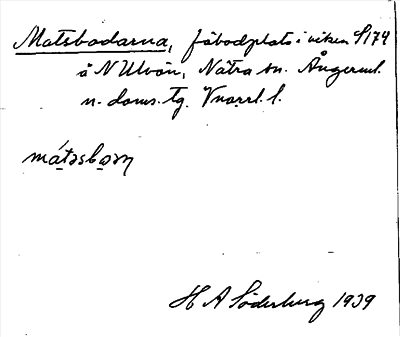 Matsbodarna, fäbodplats i viken S174
å N Ulvön, Nätra sn. Ångerml.
n. doms. tg. Vnorrl. l.
mátǝsbǫǝn
H A Söderberg 1939